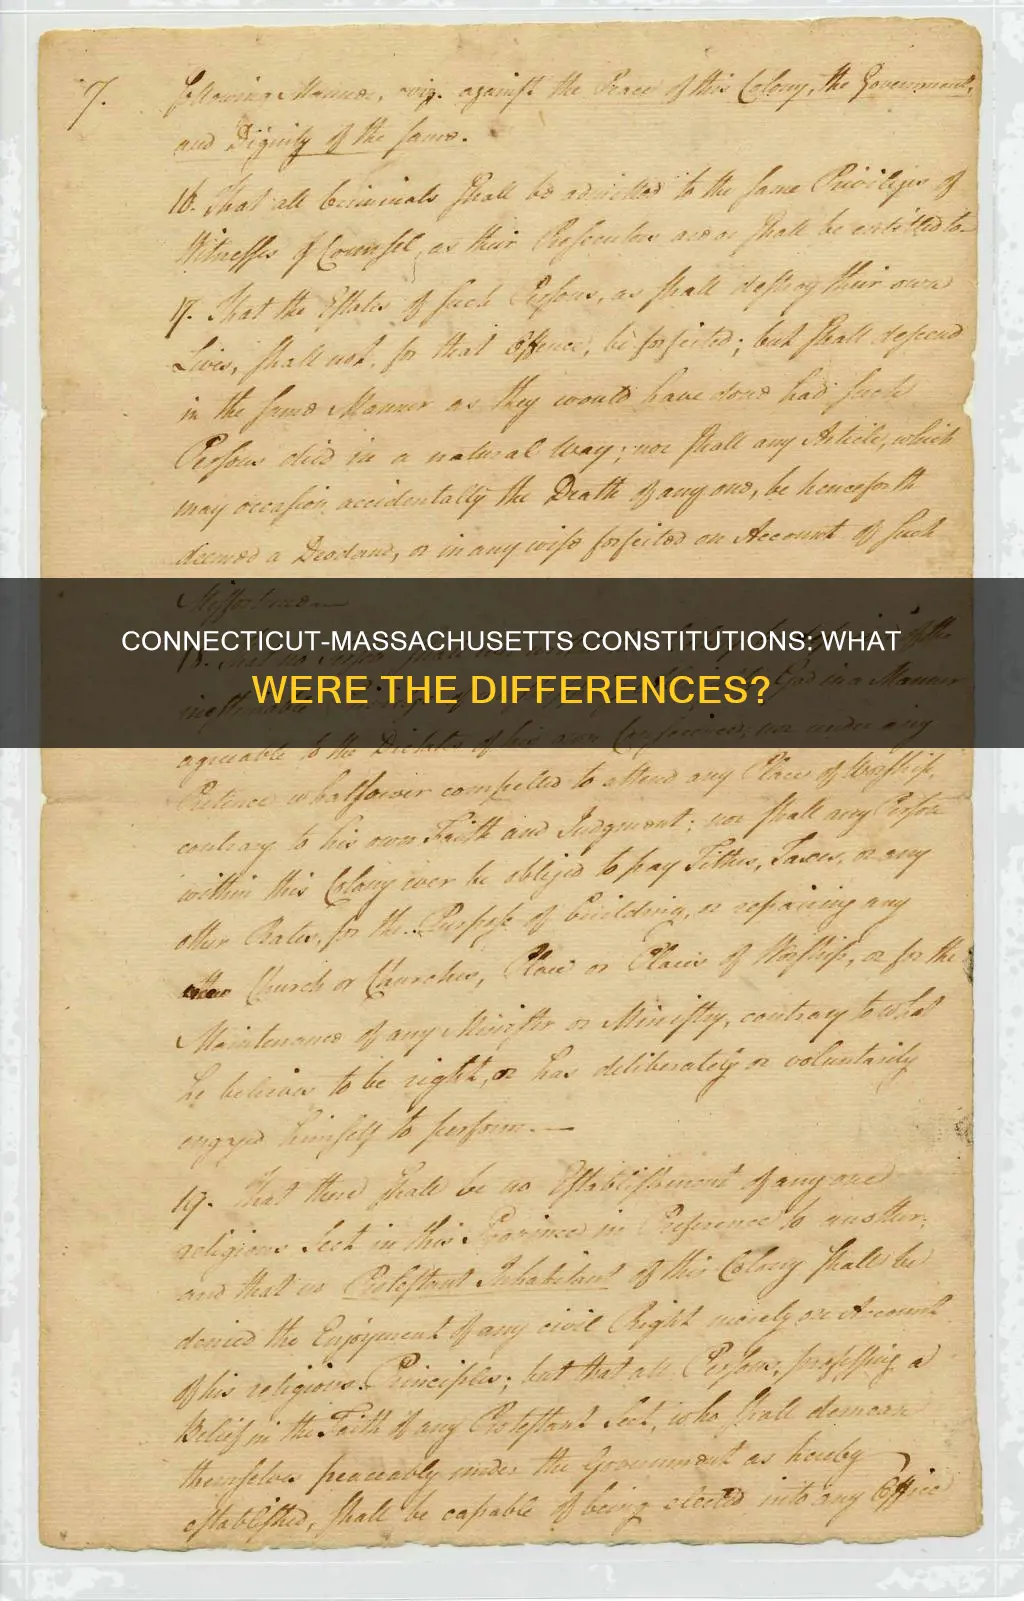 7.
following Manner, viz. against the Peace of this Colony, the Government,
and Dignity of the same.
16. That all Criminals shall be admitted to the same Privileges of
Witnesses & Counsel, as their Prosecutors are or shall be entitled to
17. That the Estates of such Persons, as shall destroy their own
Lives, shall not, for that Offence, be forfeited; but shall descend
in the same Manner as they would have done had such
Persons died in a natural Way; nor shall any Article, which
may occasion accidentally the Death of any one, be henceforth
deemed a Deodand, or in any wise forfeited on Account of such
Misfortune.
CONNECTICUT-MASSACHUSETTS CONSTITUTIONS: WHAT
WERE THE DIFFERENCES?
God in a Manner
agreeable to the Dictates of his own Conscience, nor under any
Pretence whatsoever compelled to attend any Place of Worship,
contrary to his own Faith and Judgment; nor shall any Person
within this Colony ever be obliged to pay Tithes, Taxes, or any
other Rates, for the Purpose of building, or repairing any
Church or Churches, Place or Places of Worship, or for the
Maintenance of any Minister or Ministry, contrary to what
he believes to be right, or has deliberately or voluntarily
engaged himself to perform.
19. That there shall be no Establishment of any one
religious Sect in this Province in Preference to another;
and that no Protestant Inhabitant of this Colony shall be
denied the Enjoyment of any civil Right merely on Account
of his religious Principles; but that all Persons, professing a
Belief in the Faith of any Protestant Sect, who shall demean
themselves peaceably under the Government as hereby
established, shall be capable of being elected into any Office